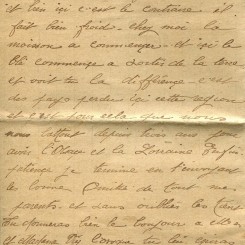 et bien ici c'est le contraire il
fait bien froid chez moi la
moisson a commencer et ici le
blé commence a sortir de la terre
et voit tu la différence c'est
des pays perdu ici cette région
et c'est pour cela que nous
nous battont depuis trois ans pour
avoir l'Alsace et la Lorraine Enfin
patience je termine en t'envoyant
les bonne Amitié de tout mes
parents et sans oublier les tient
Tu donneras bien le bonjour a